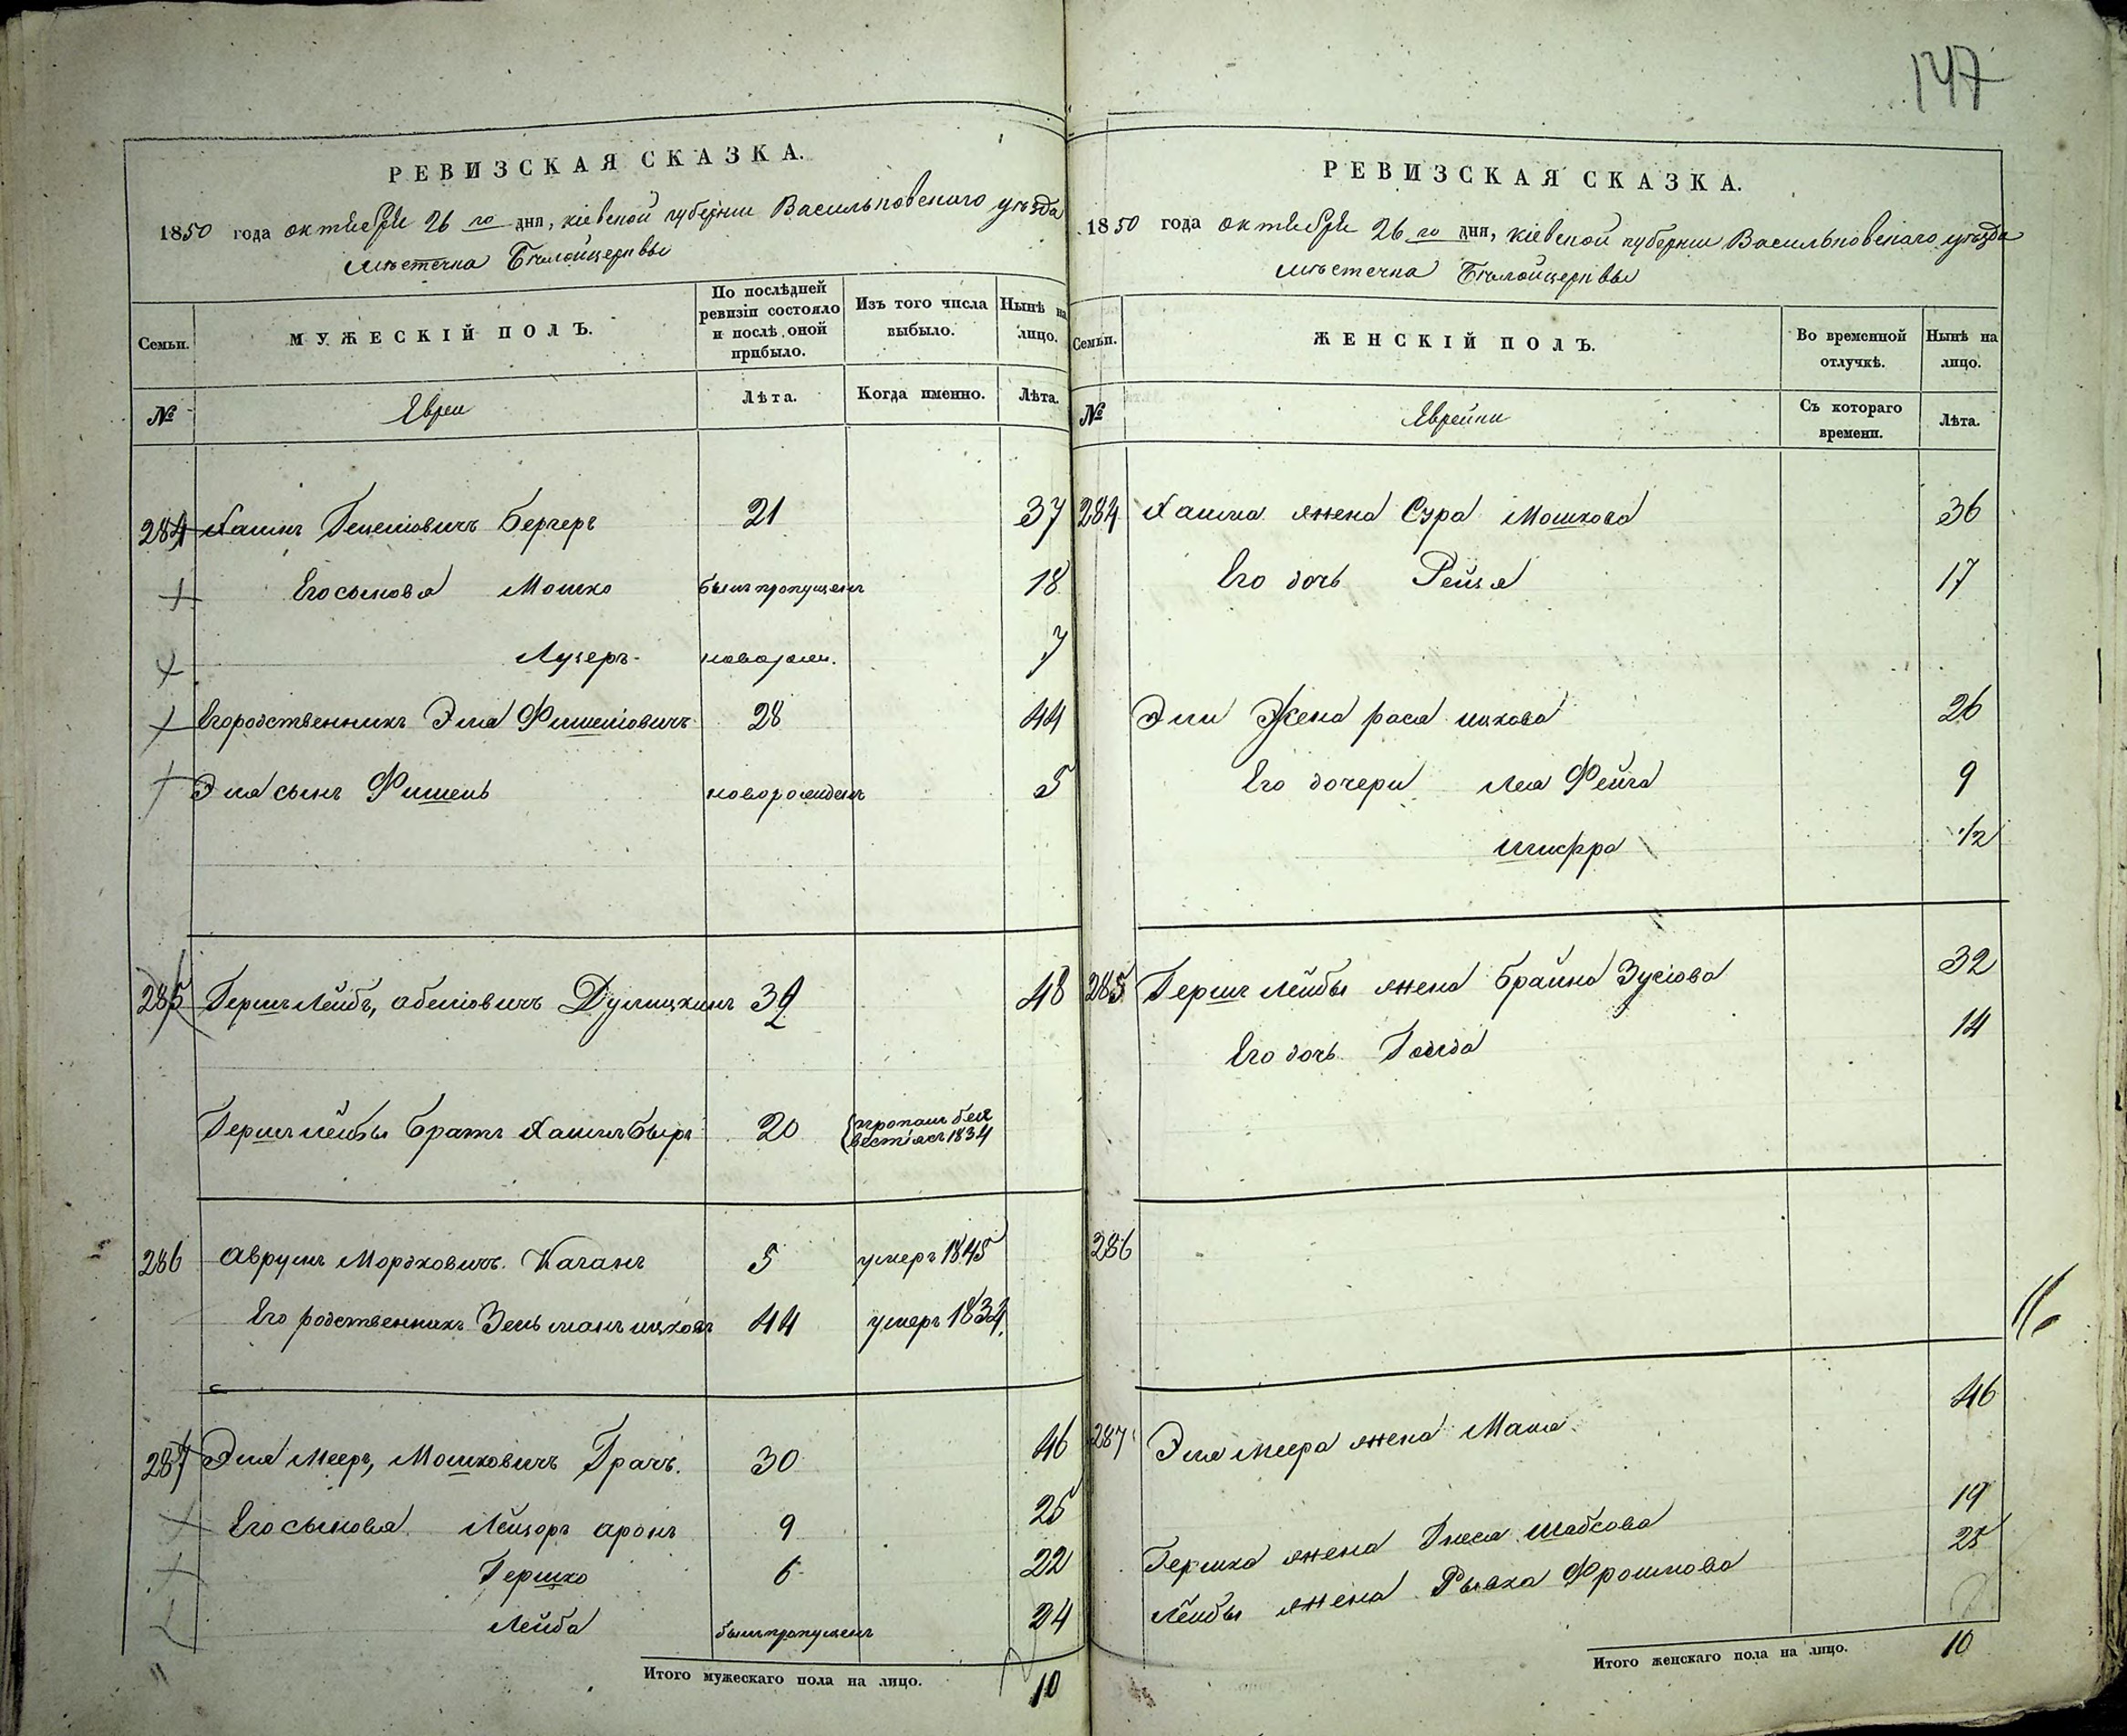 147
РЕВИЗСКАЯ СКАЗКА.
1850 года октября 26 го дня, кіевской губерніи Васильковскаго уѣзда
мѣстечка Бѣлойцеркви
Семьи.
МУЖЕСКІЙ ПОЛЪ.
По послѣдней ревизіи состояло и послѣ оной прибыло.
Изъ того числа выбыло.
Нынѣ на лицо.
№
Евреи
Лѣта.
Когда именно.
Лѣта.
284 Хаимъ Бергеръ 21 37
Его сыновя Мошко былъ пропущенъ 18
Лузеръ новорож. 7
Его родственникъ Эля Фишеліовичъ 28 44
Эля сынъ Фишель новорожденъ 5
285 Гершъ Лейбъ, абеліовичъ 32 48
Гершъ лейбы братъ Хаимъ Беръ 20 пропалъ безъ вести 1834
286 Аврумъ Мордковичъ Каганъ 5 умеръ 1845
Его родственникъ Зельманъ ицковъ 44 умеръ 1834
287 Эля Мееръ, Мошковичъ Грачъ. 30 46
Его сыновя Лейзоръ аронъ 9 25
Гершко 6 22
Лейба былъ пропущенъ 24
Итого мужескаго пола на лицо. 10
РЕВИЗСКАЯ СКАЗКА.
1850 года октября 26 го дня, кіевской губерніи Васильковскаго уѣзда
мѣстечка Бѣлойцеркви
Семьи.
ЖЕНСКІЙ ПОЛЪ.
Во временной отлучкѣ.
Нынѣ на лицо.
№
Еврейки
Съ котораго времени.
Лѣта.
284 Хаима жена Сура Мошкова 36
Его дочь Рейзя 17
Эли Жена рася ицкова 26
Его дочери Лея Фейга 9
шифра 1/2
285 Гершъ лейбы жена Брайна Зусіова 32
Его дочь Голда 14
286
287 Эля меера жена Маня 46
Гершка жена Гнеся шабсова 19
Лейбы жена Рывка Фроимова 25
Итого женскаго пола на лицо. 10